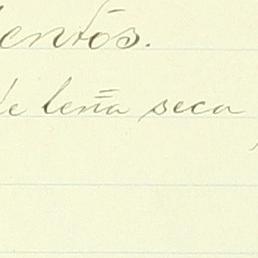 entos.
de leña seca